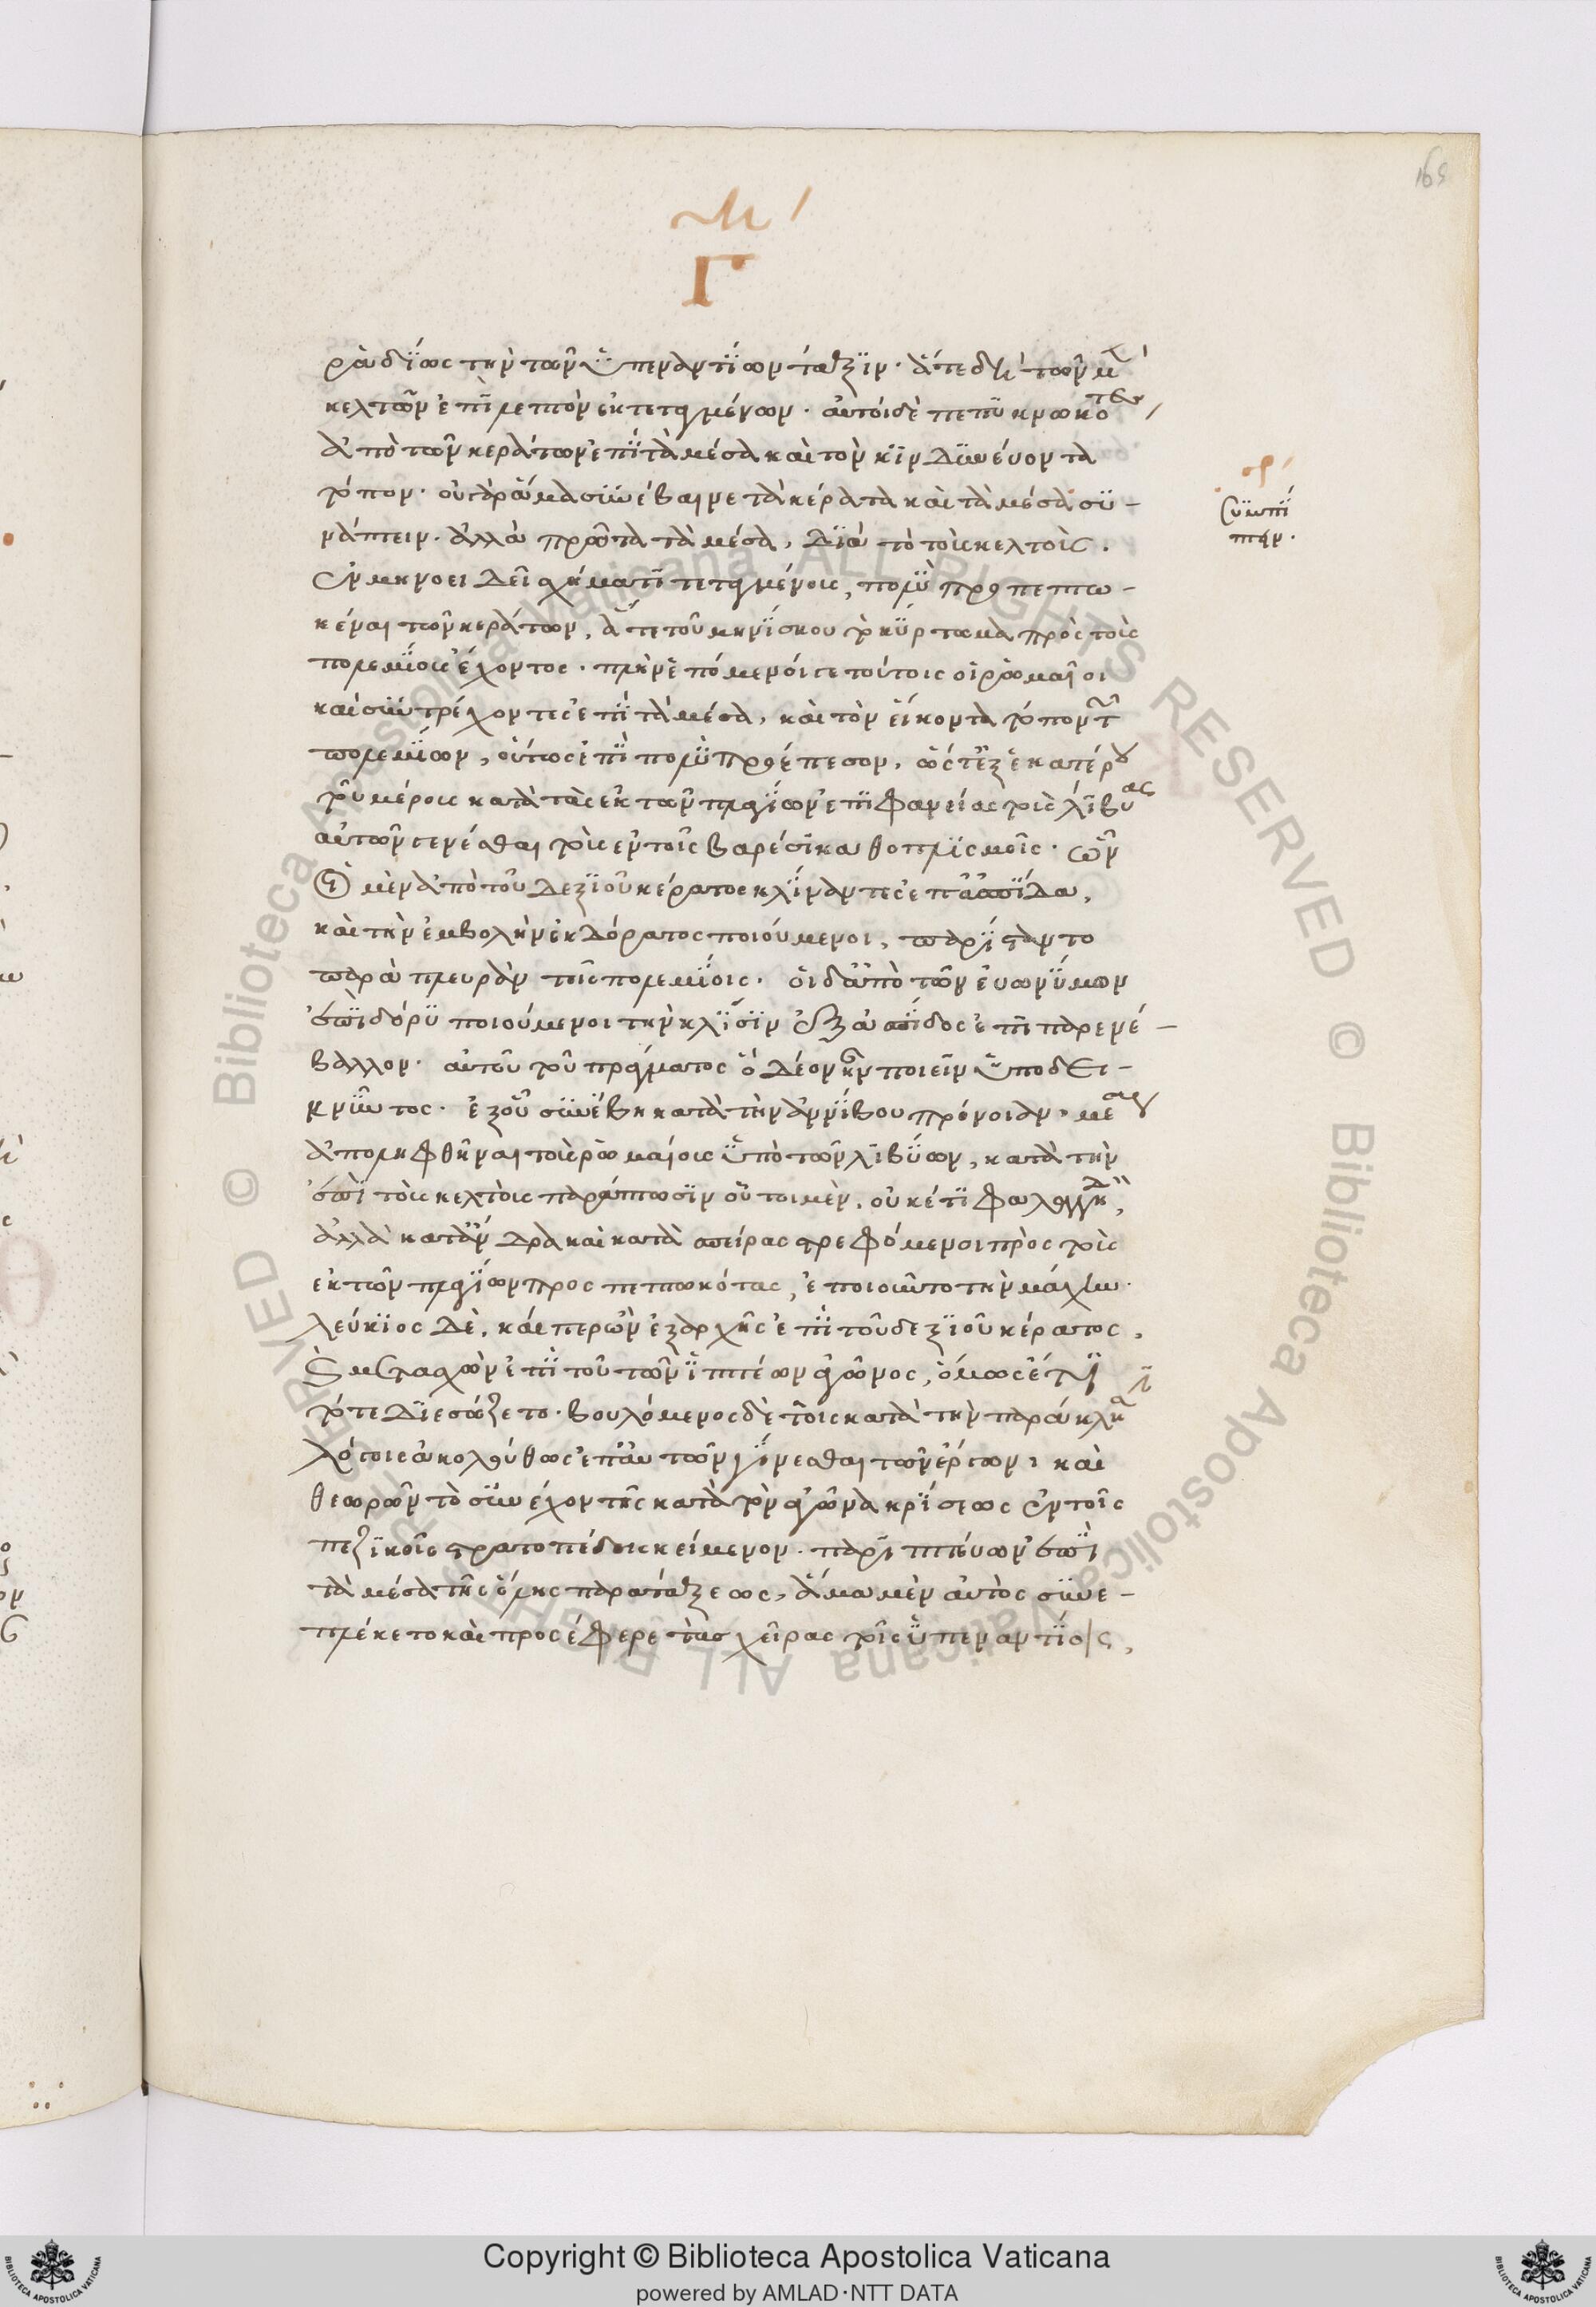 169
Γ
ῥαδίως τὴν τῶν ὑπεναντίων τάξιν· ἅτε δὴ τῶν μὲν
κελτῶν ἐπὶ λεπτὸν ἐκτεταγμένων· αὐτοὶ δὲ πεπυκνωκότες
ἀπὸ τῶν κεράτων ἐπὶ τὰ μέσα καὶ τὸν κινδυνεύοντα
τόπον· οὐ γὰρ ἅμα συνέβαινε τὰ κέρατα καὶ τὰ μέσα συ-
νάπτειν· ἀλλὰ πρῶτα τὰ μέσα, διὰ τὸ τοὺς κελτοὺς
ἐν μηνοειδεῖ σχήματι τεταγμένους, πολὺ προπεπτω-
κέναι τῶν κεράτων, ἅτε τοῦ μηνίσκου τὸ κύρτωμα πρὸς τοὺς
πολεμίους ἔχοντος· πλὴν ἑπόμενοί γε τούτοις οἱ ῥωμαῖοι
καὶ συντρέχοντες ἐπὶ τὰ μέσα, καὶ τὸν εἴκοντα τόπον τῶν
πολεμίων, οὕτως ἐπὶ πολὺ προέπεσον, ὥστ' ἐξ ἑκατέρου
τοῦ μέρους κατὰ τὰς ἐκ τῶν πλαγίων ἐπιφανείας τοὺς λίβυας
αὐτῶν γενέσθαι τοὺς ἐν τοῖς βαρέσι καθοπλισμοῖς· ὧν
οἱ μὲν ἀπὸ τοῦ δεξιοῦ κέρατος κλίναντες ἐπ' ἀσπίδα,
καὶ τὴν ἐμβολὴν ἐκ δόρατος ποιούμενοι, παρίσταντο
παρὰ πλευρὰν τοῖς πολεμίοις· οἱ δ' ἀπὸ τῶν εὐωνύμων
ἐπὶ δόρυ ποιούμενοι τὴν κλίσιν ἐξ ἀσπίδος ἐπιπαρενέ-
βαλλον· αὐτοῦ τοῦ πράγματος ὃ δέον ἦν ποιεῖν ὑποδει-
κνύντος· ἐξ οὗ συνέβη κατὰ τὴν ἀννίβου πρόνοιαν· μέσους
ἀποληφθῆναι τοὺς ῥωμαίους ὑπὸ τῶν λιβύων, κατὰ τὴν
ἐπὶ τοὺς κελτοὺς παράπτωσιν οὗτοι μὲν, οὐκέτι φαλαγγηδὸν,
ἀλλὰ κατ' ἄνδρα καὶ κατὰ σπείρας στρεφόμενοι πρὸς τοὺς
ἐκ τῶν πλαγίων προσπεπτωκότας, ἐποιοῦντο τὴν μάχην·
λεύκιος δὲ, καίπερ ὢν ἐξ ἀρχῆς ἐπὶ τοῦ δεξιοῦ κέρατος,
καὶ μετασχὼν ἐπί τι τοῦ τῶν ἱππέων ἀγῶνος, ὅμως ἔτι
τότε διεσώζετο· βουλόμενος δὲ τοῖς κατὰ τὴν παράκλησιν
λόγοις ἀκολούθως ἐπ' αὐτῶν γίνεσθαι τῶν ἔργων· καὶ
θεωρῶν τὸ συνέχον τῆς κατὰ τὸν ἀγῶνα κρίσεως ἐν τοῖς
πεζικοῖς στρατοπέδοις κείμενον· παριππεύων ἐπὶ
τὰ μέσα τῆς ὅλης παρατάξεως, ἅμα μὲν αὐτὸς συνε-
πλέκετο καὶ προσέφερε τὰς χεῖρας τοῖς ὑπεναντίοις,
Copyright © Biblioteca Apostolica Vaticana
powered by AMLAD·NTT DATA
© Biblioteca Apostolica Vaticana ALL RIGHTS RESERVED
© Biblioteca Apostolica Vaticana ALL RIGHTS RESERVED
BIBLIOTECA APOSTOLICA VATICANA
BIBLIOTECA APOSTOLICA VATICANA